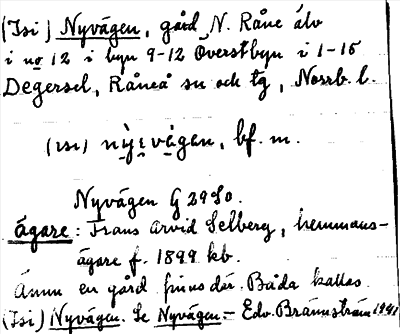 (Isi) Nyvägen, gård N. Råne älv
i no 12 i byn 9-12 Överstbyn i 1-15
Degersel, Råneå sn och tg, Norrb. l.
(ısı) nỳɩvägen, bf. m.
Nyvägen G 29 So.
ägare: Frans Arvid Selberg, hemmans-
ägare f. 1899 kb.
Ännu en gård finns där. Båda kallas
(Isi) Nyvägen. Se Nyvägen - Edv. Brännström 1941